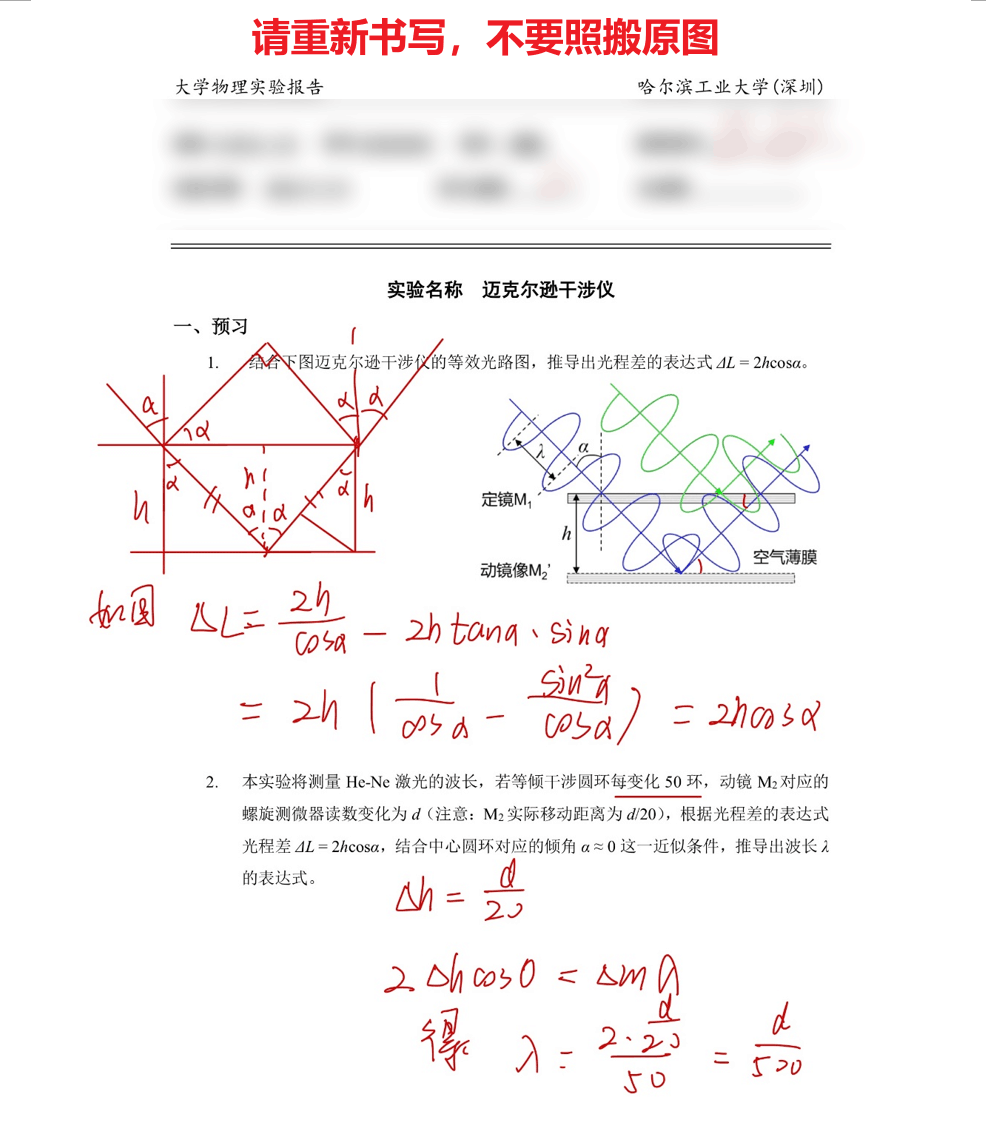 请重新书写，不要照搬原图
大学物理实验报告 哈尔滨工业大学(深圳)
实验名称 迈克尔逊干涉仪
一、预习
1. 结合下图迈克尔逊干涉仪的等效光路图，推导出光程差的表达式 ΔL = 2hcosα。
α α α α
α α
h α α h h
λ α
定镜M₁
h
空气薄膜
动镜像M₂'
如图 ΔL = 2h/cosα − 2h tanα · sinα
= 2h (1/cosα − sin²α/cosα) = 2hcosα
2. 本实验将测量 He-Ne 激光的波长，若等倾干涉圆环每变化 50 环，动镜 M₂ 对应的
螺旋测微器读数变化为 d（注意：M₂ 实际移动距离为 d/20），根据光程差的表达式
光程差 ΔL = 2hcosα，结合中心圆环对应的倾角 α ≈ 0 这一近似条件，推导出波长 λ
的表达式。
Δh = d/20
2 Δh cos0 = Δm λ
得 λ = (2·d/20)/50 = d/500